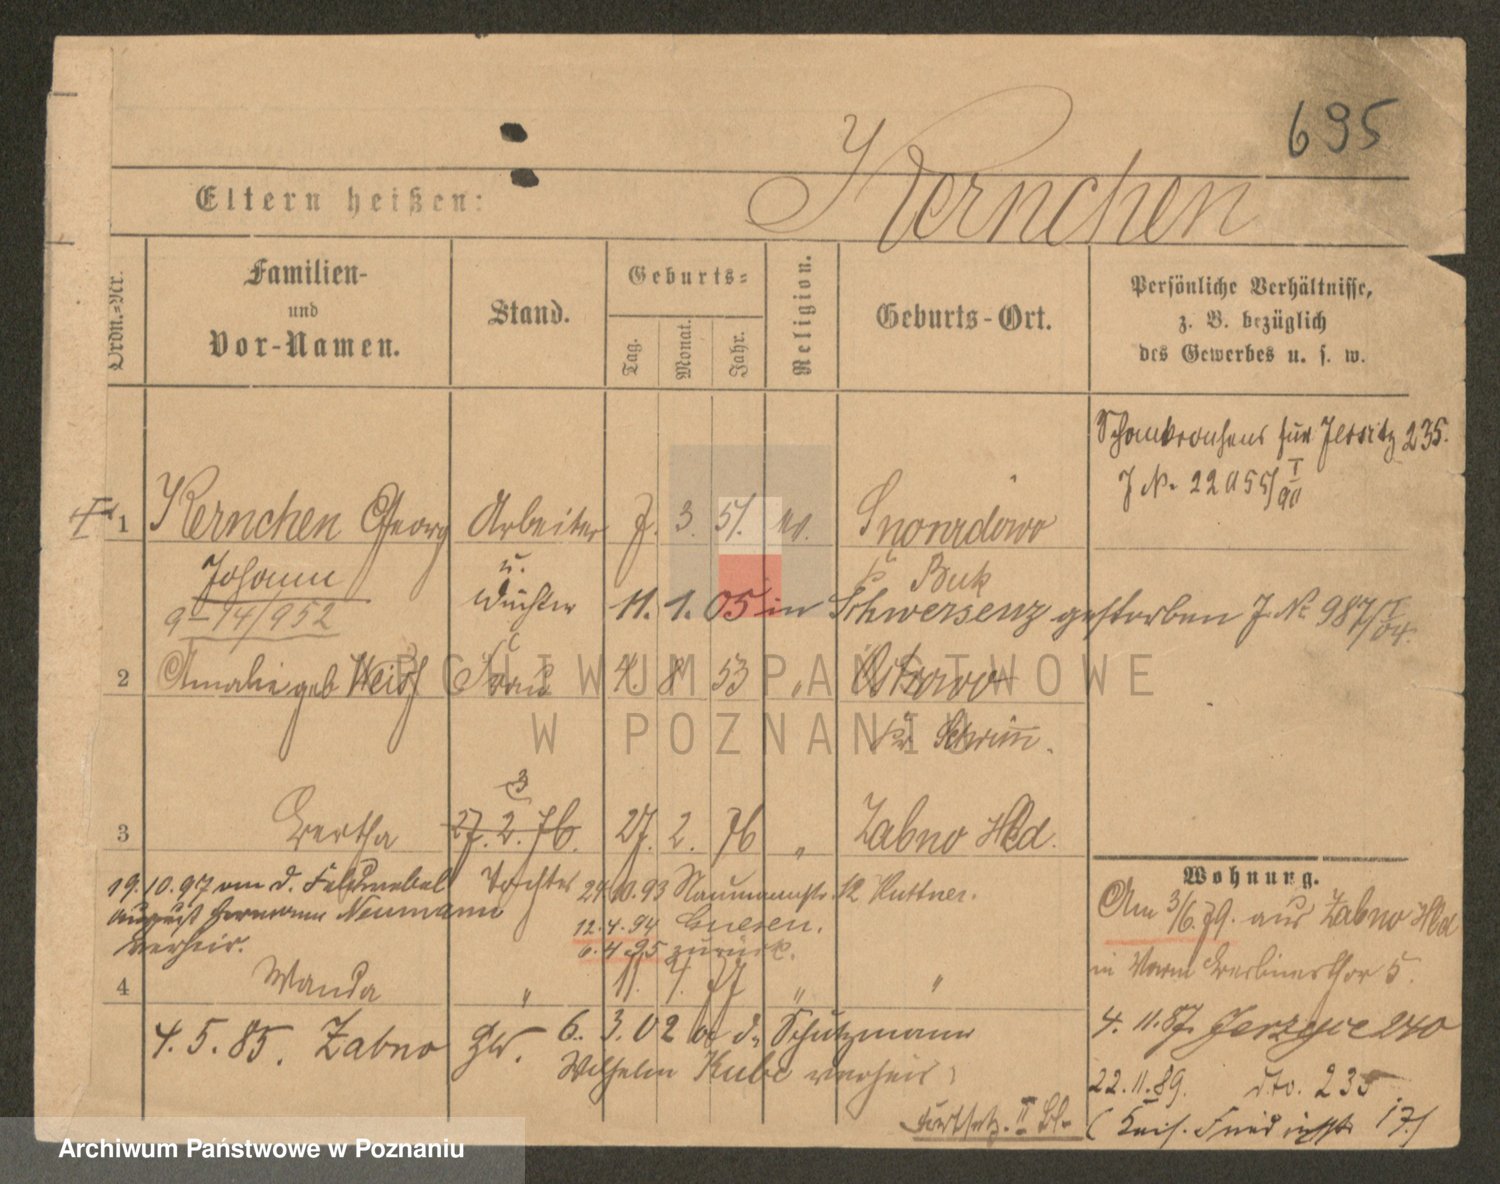 695
Eltern heißen:
Kernchen
Ordn.-Nr.
Familien-
und
Vor-Namen.
Stand.
Geburts-
Tag.
Monat.
Jahr.
Religion.
Geburts-Ort.
Persönliche Verhältnisse,
z. B. bezüglich
des Gewerbes u. s. w.
für Jersitz 235.
J № 22055/I 90
1 Kernchen Georg Arbeiter 7. 3. 51. ev.
Johann u. Buk
Wächter 11. 1. 05 in Schwersenz gestorben J. № 987/I 04.
9-14/952
2 Amalie geb Weiß Frau 4. 8. 53 „ Ostrowo
Kr Schrimm.
3
3 Bertha 27. 2. 76. 27. 2. 76 „ Zabno Hld.
19.10.97 von d. Feldwebel Tochter 24.10.93 Naumannstr. 12 Huttner.
August Hermann Neumann 12.4.94 Gnesen.
verheir. 6.4.95 zurück.
4 Wanda „ 11. 4. 77 „ „
4. 5. 85. Zabno 6. 3. 02 a. d. Schutzmann
Wilhelm Kube verheir.
Fortsetz. II Bl.
Wohnung.
Am 3/6. 79. aus Zabno Hld
in Berlinerthor 5.
4. 11. 87. Jerzyce 240
22. 11. 89. dto. 235
(Kais. Friedrichstr. 17.)
ARCHIWUM PAŃSTWOWE
W POZNANIU
Archiwum Państwowe w Poznaniu